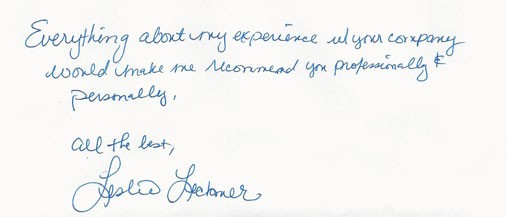 Everything about my experience w/ your company
would make me recommend you professionally &
personally.
All the best,
Leslie